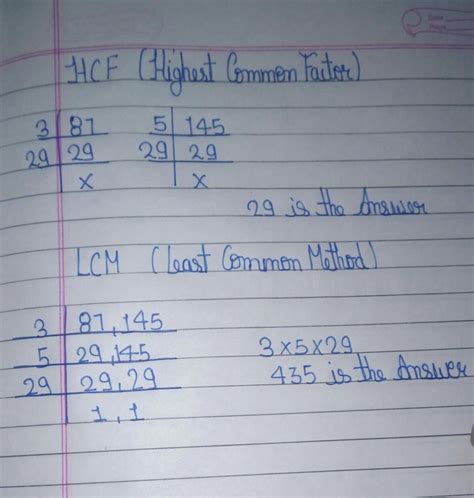 HCF (Highest Common Factor)
3 87 5 145
29 29 29 29
x x
29 is the Answer
LCM (Least Common Method)
3 87, 145
5 29, 145 3×5×29
29 29, 29 435 is the Answer
1, 1